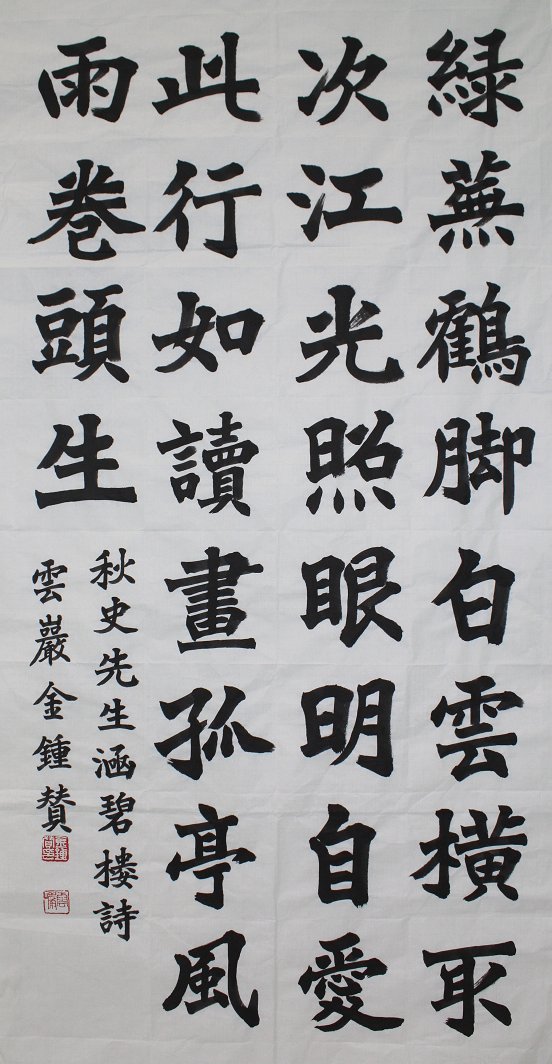 緑蕪鶴脚白雲橫取
次江光照眼明自愛
此行如讀畫孤亭風
雨卷頭生
秋史先生涵碧樓詩
雲巖金鍾贊